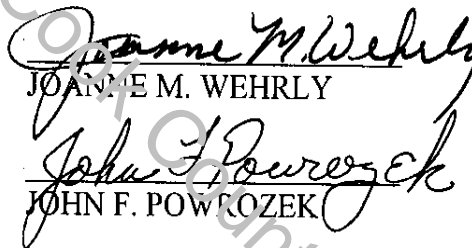 Joanne M. Wehrly
JOANNE M. WEHRLY
John F. Powrozek
JOHN F. POWROZEK
Cook Coun